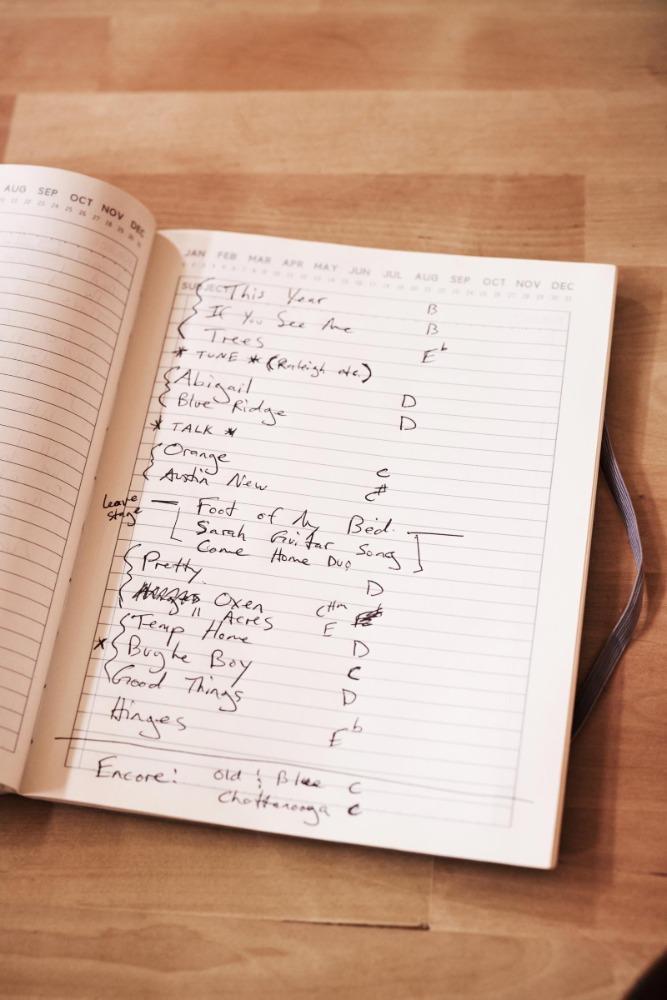 AUG SEP OCT NOV DEC
JAN FEB MAR APR MAY JUN JUL AUG SEP OCT NOV DEC
SUBJECT
This Year B
If You See Me B
Trees E b
* TUNE * (Raleigh etc.)
Abigail D
Blue Ridge D
* TALK *
Orange C
Austin New C#
leave stage
Foot of My Bed
Sarah Guitar Song
Come Home Duo
Pretty D
Oxen C#m
" Acres E
Temp Home D
* Bughe Boy C
Good Things D
Hinges E b
Encore: Old & Blue C
Chattanooga C